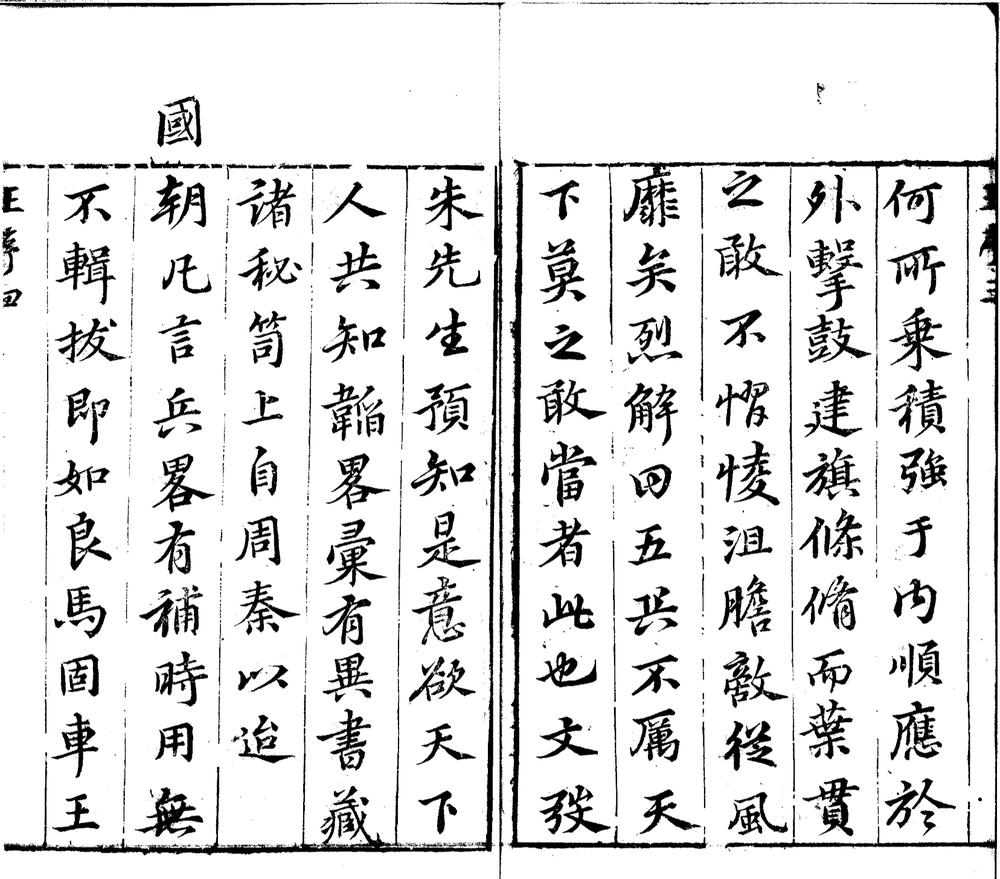 何所乗積強于内順應於
外擊鼓建旗條脩而葉貫
之敢不慴㥄沮膽敵從風
靡矣烈解五兵不厲天
下莫之敢當者此也文弢
朱先生預知是意欲天下
人共知韜畧彙有異書藏
諸秘笥上自周秦以迨
國朝凡言兵畧有補時用無
不輯拔即如良馬固車王